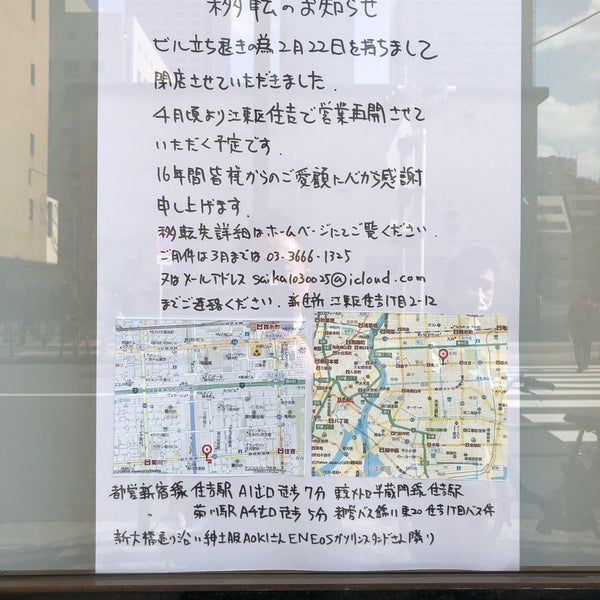 移転のお知らせ
ビル立ち退きの為2月22日を持ちまして
閉店させていただきました.
4月頃より江東区住吉で営業再開させて
いただく予定です.
16年間皆様からのご愛顧に心から感謝
申し上げます.
移転先詳細はホームページにてご覧ください.
ご用件は3月までは03-3666-1325
又はメールアドレス saika1030025@icloud.com
までご連絡ください. 新住所 江東区住吉1丁目2-12
都営新宿線 住吉駅 A1出口 徒歩7分 東京メトロ半蔵門線 住吉駅
〃 菊川駅 A4出口 徒歩5分 都営バス 東20 住吉1丁目バス停
新大橋通り沿い紳士服AOKIさんENEOSガソリンスタンドさん隣り